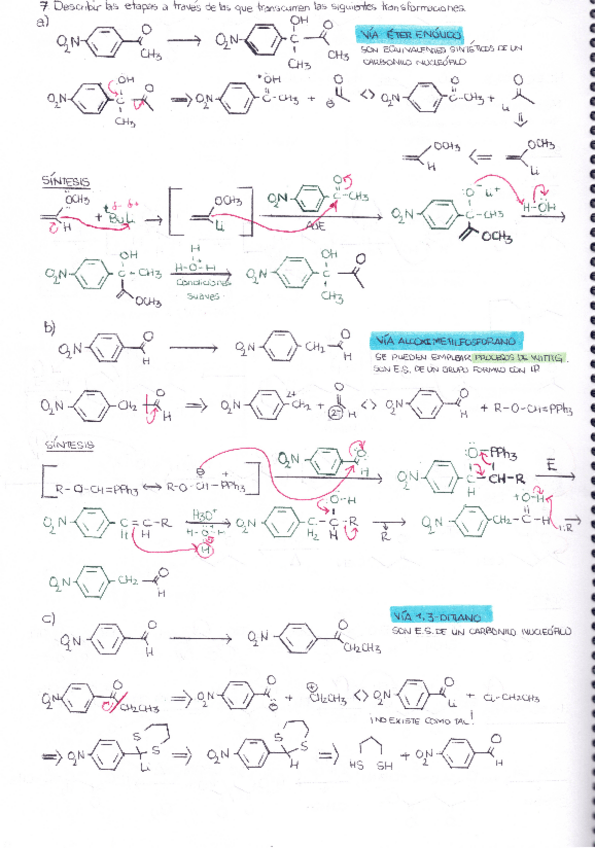 7. Describir las etapas a través de las que transcurren las siguientes transformaciones.
a)
O2N CH3 → O2N OH C O CH3 CH3
VÍA ÉTER ENÓLICO
SON EQUIVALENTES SINTÉTICOS DE UN
CARBONILO NUCLEÓFILO
O2N OH C O CH3 ⇒ O2N +OH C-CH3 + O ⊖ <> O2N O C-CH3 + O Li
OCH3 H <= OCH3 Li
SÍNTESIS
OCH3 H + BuLi δ- δ+ → [ OCH3 Li ] O2N O C-CH3 → O2N O- Li+ C-CH3 OCH3 H-OH →
O2N OH C-CH3 OCH3 H-O+-H H
Condiciones
suaves
O2N OH C O CH3
b)
O2N O H → O2N CH2 O H
VÍA ALCOXIMETILFOSFORANO
SE PUEDEN EMPLEAR PROCESOS DE WITTIG.
SON E.S. DE UN GRUPO FORMILO CON UP
O2N CH2 O H ⇒ O2N 2+ CH2 + O H 2- <> O2N O H + R-O-CH=PPh3
SÍNTESIS
[ R-O-CH=PPh3 ↔ R-O-CH-PPh3 ⊖ + ] O2N O H → O2N O-PPh3 C-CH-R H E →
O2N C=C-R H H H3O+ → O2N C-C-R H2 H O-H → R O2N CH2-C-H +O-H :R →
O2N CH2 O H
c)
O2N O H → O2N O CH2CH3
VÍA 1,3-DITIANO
SON E.S. DE UN CARBONILO NUCLEÓFILO
O2N O CH2CH3 ⇒ O2N O ⊖ + ⊕ CH2CH3 <> O2N O Li + Cl-CH2CH3
¡NO EXISTE COMO TAL!
⇒ O2N S S Li ⇒ O2N S S H ⇒ HS SH + O2N O H